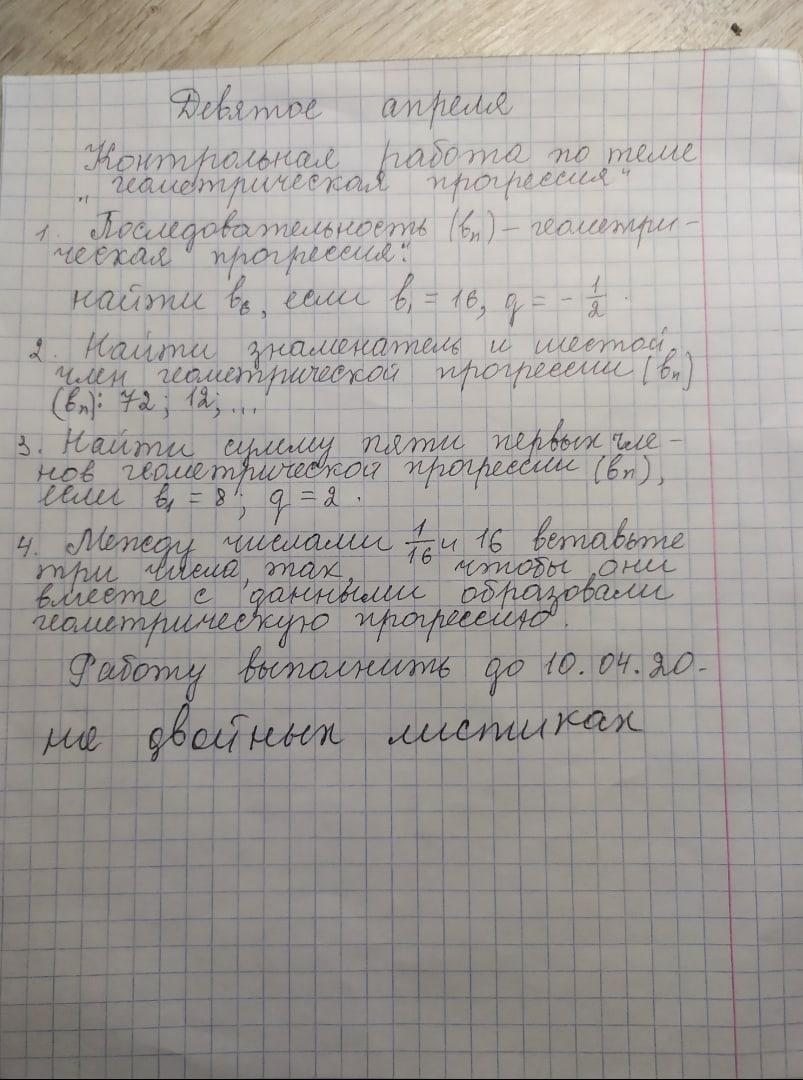 Девятое апреля
Контрольная работа по теме
„геометрическая прогрессия"
1. Последовательность (bₙ) – геометри-
ческая прогрессия:
найти b₆, если b₁ = 16, q = - 1/2.
2. Найти знаменатель и шестой
член геометрической прогрессии (bₙ)
(bₙ): 72; 12; ...
3. Найти сумму пяти первых чле-
нов геометрической прогрессии (bₙ),
если b₁ = 8; q = 2.
4. Между числами 1/16 и 16 вставьте
три числа, так, чтобы они
вместе с данными образовали
геометрическую прогрессию.
Работу выполнить до 10.04.20-
на двойных листиках